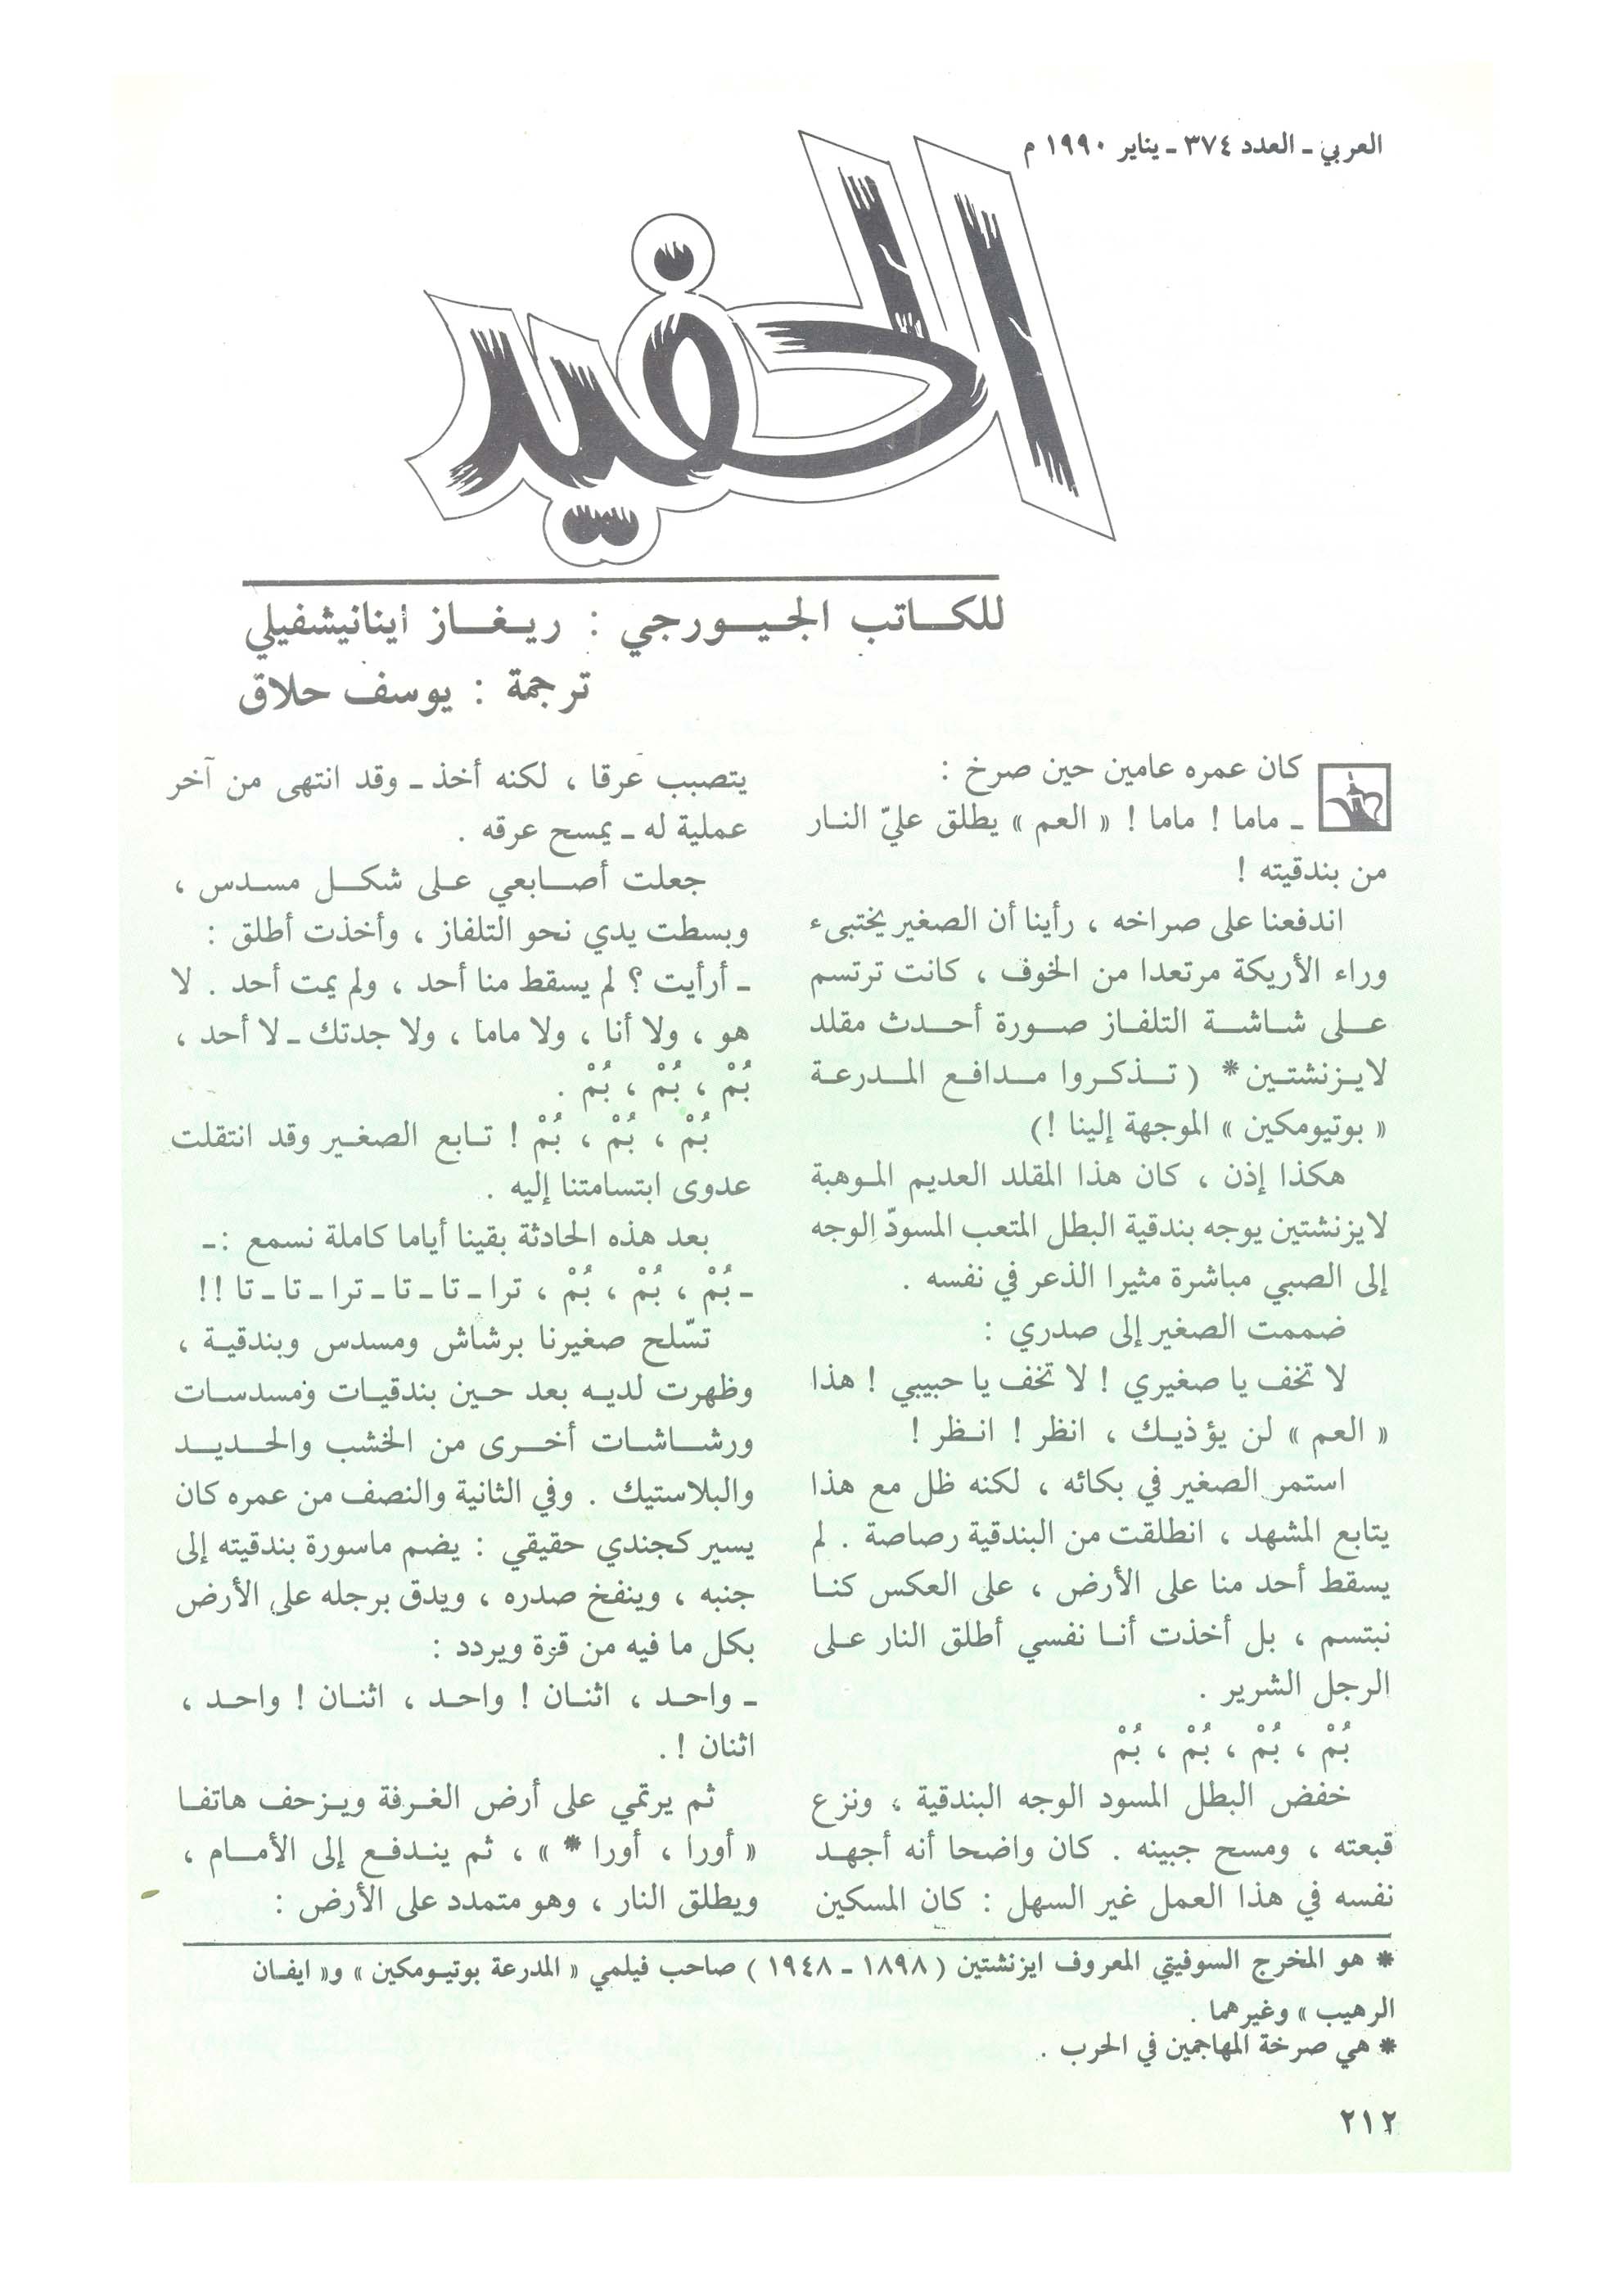 العربي ـ العدد ٣٧٤ ـ يناير ١٩٩٠ م
الحفيد
للكاتب الجيورجي : ريغاز اينانيشفيلي
ترجمة : يوسف حلاق
كان عمره عامين حين صرخ :
ـ ماما ! ماما ! « العم » يطلق عليّ النار
من بندقيته !
اندفعنا على صراخه ، رأينا أن الصغير يختبىء
وراء الأريكة مرتعدا من الخوف ، كانت ترتسم
على شاشة التلفاز صورة أحدث مقلد
لايزنشتين* ( تذكروا مدافع المدرعة
« بوتيومكين » الموجهة إلينا !)
هكذا إذن ، كان هذا المقلد العديم الموهبة
لايزنشتين يوجه بندقية البطل المتعب المسودّ الوجه
إلى الصبي مباشرة مثيرا الذعر في نفسه .
ضممت الصغير إلى صدري :
لا تخف يا صغيري ! لا تخف يا حبيبي ! هذا
« العم » لن يؤذيك ، انظر ! انظر !
استمر الصغير في بكائه ، لكنه ظل مع هذا
يتابع المشهد ، انطلقت من البندقية رصاصة . لم
يسقط أحد منا على الأرض ، على العكس كنا
نبتسم ، بل أخذت أنا نفسي أطلق النار على
الرجل الشرير .
بُمْ ، بُمْ ، بُمْ ، بُمْ
خفض البطل المسود الوجه البندقية ، ونزع
قبعته ، ومسح جبينه . كان واضحا أنه أجهد
نفسه في هذا العمل غير السهل : كان المسكين
يتصبب عرقا ، لكنه أخذ ـ وقد انتهى من آخر
عملية له ـ يمسح عرقه .
جعلت أصابعي على شكل مسدس ،
وبسطت يدي نحو التلفاز ، وأخذت أطلق :
ـ أرأيت ؟ لم يسقط منا أحد ، ولم يمت أحد . لا
هو ، ولا أنا ، ولا ماما ، ولا جدتك ـ لا أحد ،
بُمْ ، بُمْ ، بُمْ .
بُمْ ، بُمْ ، بُمْ ! تابع الصغير وقد انتقلت
عدوى ابتسامتنا إليه .
بعد هذه الحادثة بقينا أياما كاملة نسمع :ـ
ـ بُمْ ، بُمْ ، بُمْ ، ترا ـ تا ـ تا ـ ترا ـ تا ـ تا !!
تسّلح صغيرنا برشاش ومسدس وبندقية ،
وظهرت لديه بعد حين بندقيات ومسدسات
ورشاشات أخرى من الخشب والحديد
والبلاستيك . وفي الثانية والنصف من عمره كان
يسير كجندي حقيقي : يضم ماسورة بندقيته إلى
جنبه ، وينفخ صدره ، ويدق برجله على الأرض
بكل ما فيه من قوة ويردد :
ـ واحد ، اثنان ! واحد ، اثنان ! واحد ،
اثنان ! .
ثم يرتمي على أرض الغرفة ويزحف هاتفا
« أورا ، أورا * » ، ثم يندفع إلى الأمام ،
ويطلق النار ، وهو متمدد على الأرض :
* هو المخرج السوفيتي المعروف ايزنشتين ( ١٨٩٨ ـ ١٩٤٨ ) صاحب فيلمي « المدرعة بوتيومكين » و« ايفان
الرهيب » وغيرهما .
* هي صرخة المهاجمين في الحرب .
٢١٢